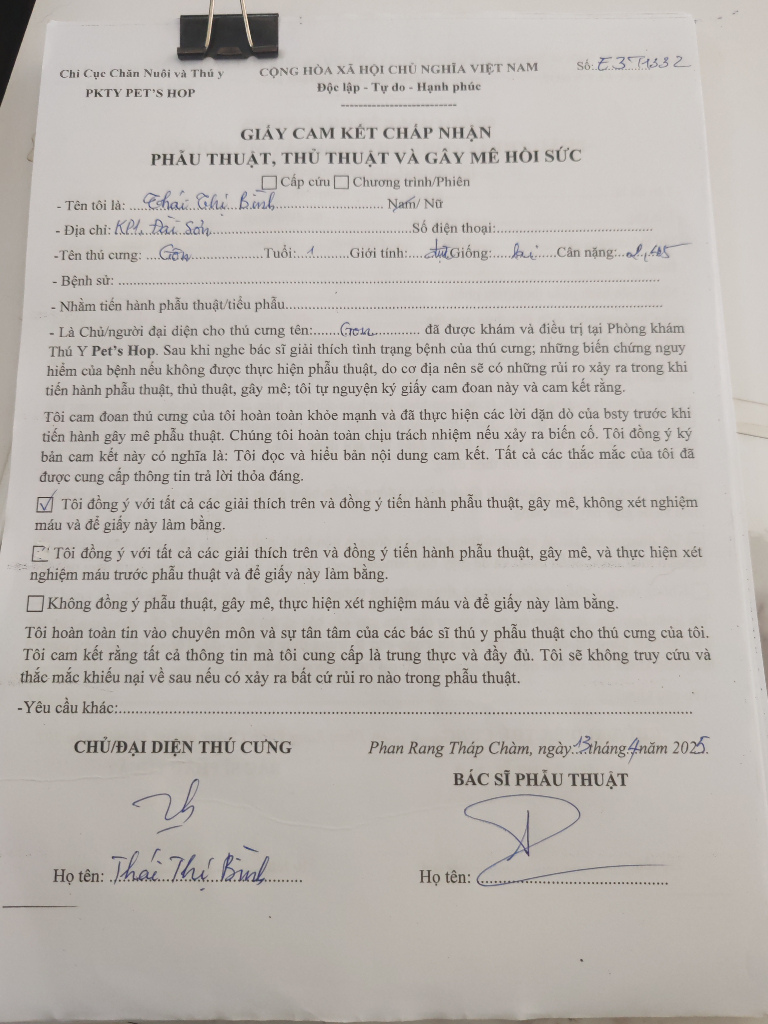 Chi Cục Chăn Nuôi và Thú y
PKTY PET'S HOP
CỘNG HÒA XÃ HỘI CHỦ NGHĨA VIỆT NAM
Độc lập - Tự do - Hạnh phúc
Số: E3T1332
GIẤY CAM KẾT CHẤP NHẬN
PHẪU THUẬT, THỦ THUẬT VÀ GÂY MÊ HỒI SỨC
Cấp cứu Chương trình/Phiên
- Tên tôi là: Thái Thị Bình Nam/ Nữ
- Địa chỉ: KP1. Đài Sơn Số điện thoại:
-Tên thú cưng: Gôn Tuổi: 1 Giới tính: đực Giống: lai Cân nặng:
- Bệnh sử:
- Nhằm tiến hành phẫu thuật/tiểu phẫu
- Là Chủ/người đại diện cho thú cưng tên: Gon đã được khám và điều trị tại Phòng khám
Thú Y Pet's Hop. Sau khi nghe bác sĩ giải thích tình trạng bệnh của thú cưng; những biến chứng nguy
hiểm của bệnh nếu không được thực hiện phẫu thuật, do cơ địa nên sẽ có những rủi ro xảy ra trong khi
tiến hành phẫu thuật, thủ thuật, gây mê; tôi tự nguyện ký giấy cam đoan này và cam kết rằng.
Tôi cam đoan thú cưng của tôi hoàn toàn khỏe mạnh và đã thực hiện các lời dặn dò của bsty trước khi
tiến hành gây mê phẫu thuật. Chúng tôi hoàn toàn chịu trách nhiệm nếu xảy ra biến cố. Tôi đồng ý ký
bản cam kết này có nghĩa là: Tôi đọc và hiểu bản nội dung cam kết. Tất cả các thắc mắc của tôi đã
được cung cấp thông tin trả lời thỏa đáng.
Tôi đồng ý với tất cả các giải thích trên và đồng ý tiến hành phẫu thuật, gây mê, không xét nghiệm
máu và để giấy này làm bằng.
Tôi đồng ý với tất cả các giải thích trên và đồng ý tiến hành phẫu thuật, gây mê, và thực hiện xét
nghiệm máu trước phẫu thuật và để giấy này làm bằng.
Không đồng ý phẫu thuật, gây mê, thực hiện xét nghiệm máu và để giấy này làm bằng.
Tôi hoàn toàn tin vào chuyên môn và sự tân tâm của các bác sĩ thú y phẫu thuật cho thú cưng của tôi.
Tôi cam kết rằng tất cả thông tin mà tôi cung cấp là trung thực và đầy đủ. Tôi sẽ không truy cứu và
thắc mắc khiếu nại về sau nếu có xảy ra bất cứ rủi ro nào trong phẫu thuật.
-Yêu cầu khác:
CHỦ/ĐẠI DIỆN THÚ CƯNG
Phan Rang Tháp Chàm, ngày 13 tháng 4 năm 2025.
BÁC SĨ PHẪU THUẬT
Họ tên: Thái Thị Bình
Họ tên: